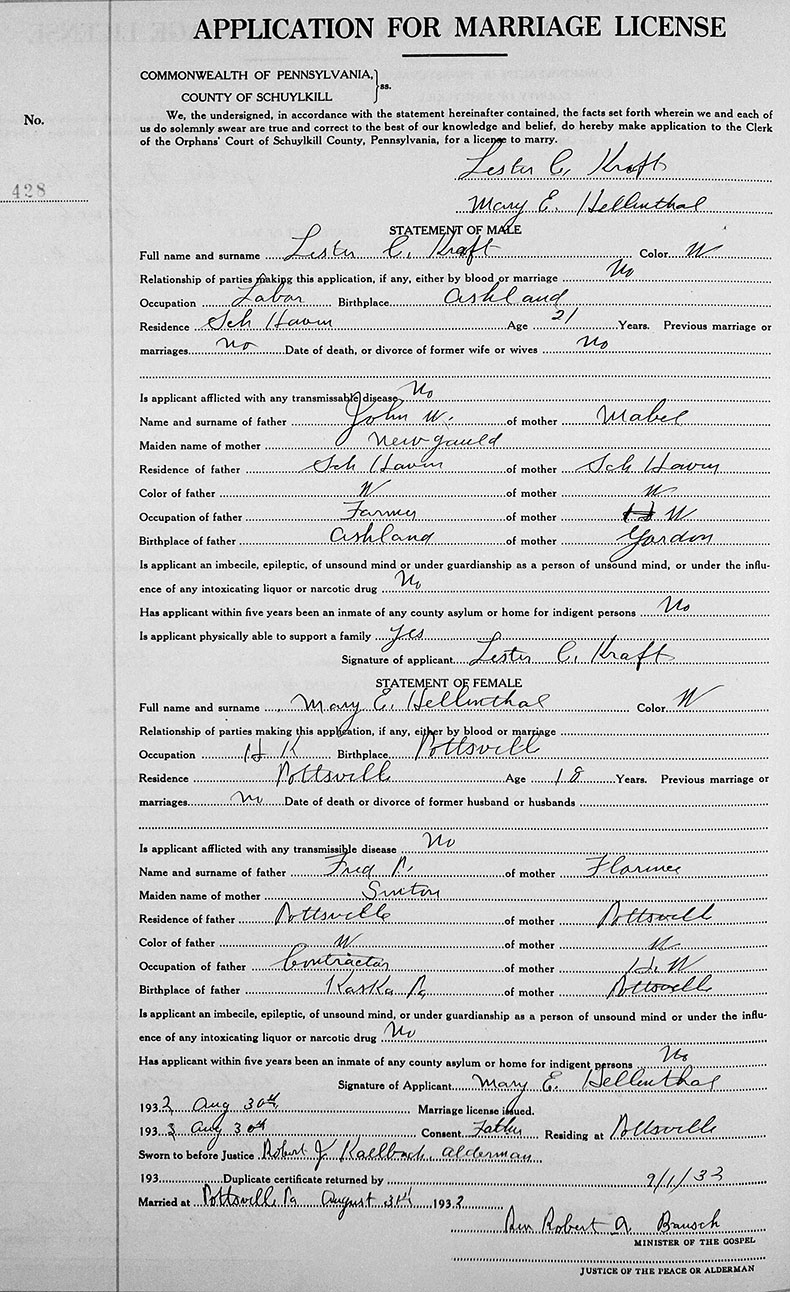 APPLICATION FOR MARRIAGE LICENSE
COMMONWEALTH OF PENNSYLVANIA,
COUNTY OF SCHUYLKILL } ss.
No.
We, the undersigned, in accordance with the statement hereinafter contained, the facts set forth wherein we and each of
us do solemnly swear are true and correct to the best of our knowledge and belief, do hereby make application to the Clerk
of the Orphans' Court of Schuylkill County, Pennsylvania, for a license to marry.
Lester C. Kraft
428
Mary E. Hellenthal
STATEMENT OF MALE
Full name and surname Lester C. Kraft Color W
Relationship of parties making this application, if any, either by blood or marriage No
Occupation Labor Birthplace Ashland
Residence Sch Haven Age 21 Years. Previous marriage or
marriages no Date of death, or divorce of former wife or wives no
Is applicant afflicted with any transmissable disease No
Name and surname of father John W. of mother Mabel
Maiden name of mother
Residence of father Sch Haven of mother Sch Haven
Color of father W of mother W
Occupation of father Farmer of mother W
Birthplace of father Ashland of mother Gordon
Is applicant an imbecile, epileptic, of unsound mind or under guardianship as a person of unsound mind, or under the influ-
ence of any intoxicating liquor or narcotic drug No
Has applicant within five years been an inmate of any county asylum or home for indigent persons No
Is applicant physically able to support a family Yes
Signature of applicant Lester C. Kraft
STATEMENT OF FEMALE
Full name and surname Mary E. Hellenthal Color W
Relationship of parties making this application, if any, either by blood or marriage
Occupation H K Birthplace Pottsville
Residence Pottsville Age 18 Years. Previous marriage or
marriages no Date of death or divorce of former husband or husbands
Is applicant afflicted with any transmissible disease No
Name and surname of father Fred P. of mother Florence
Maiden name of mother
Residence of father Pottsville of mother Pottsville
Color of father W of mother W
Occupation of father Contractor of mother H. W
Birthplace of father Kaska Pa of mother Pottsville
Is applicant an imbecile, epileptic, of unsound mind, or under guardianship as a person of unsound mind or under the influ-
ence of any intoxicating liquor or narcotic drug No
Has applicant within five years been an inmate of any county asylum or home for indigent persons No
Signature of Applicant Mary E. Hellenthal
1932 Aug 30th Marriage license issued.
193 Aug 30th Consent Father Residing at Pottsville
Sworn to before Justice Robert J Kaelbach alderman
193 Duplicate certificate returned by 9/1/32
Married at Pottsville Pa August 31st 1932
Rev Robert A. Bausch
MINISTER OF THE GOSPEL
JUSTICE OF THE PEACE OR ALDERMAN